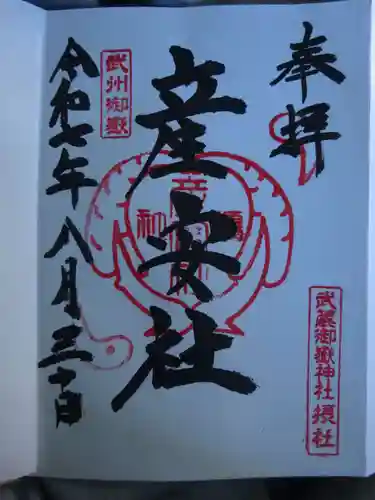 奉拝
武蔵御嶽神社 摂社
産安社
武州御嶽
令和七年八月三十日